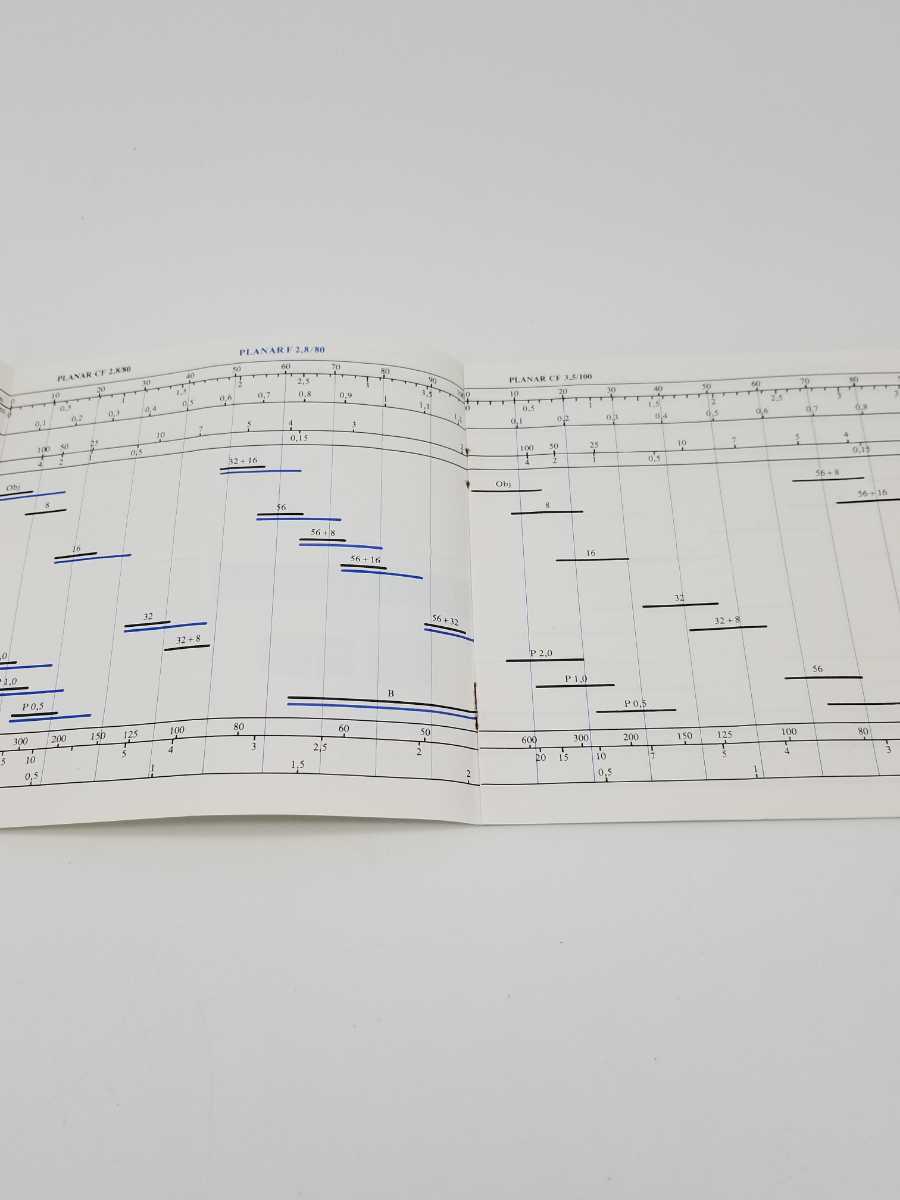 PLANAR CF 2,8/80
PLANAR F 2,8/80
0 10 20 30 40 50 60 70 80 90
0,5 1 1,5 2 2,5 3 3,5
0,1 0,2 0,3 0,4 0,5 0,6 0,7 0,8 0,9 1 1,1
100 50 25 10 7 5 4 3
4 2 1 0,5 0,15
32 + 16
Obj
8
56
56 + 8
16
56 + 16
32
56 + 32
32 + 8
P 0,5
B
300 200 150 125 100 80 60 50
5 10 5 4 3 2,5 2
0,5 1 1,5 2
PLANAR CF 3,5/100
0 10 20 30 40 50 60 70 80
0 0,5 1 1,5 2 2,5 3
0,1 0,2 0,3 0,4 0,5 0,6 0,7 0,8
100 50 25 10 7 5 4
4 2 1 0,5 0,15
56 + 8
Obj
56 + 16
8
16
32
32 + 8
P 2,0
56
P 1,0
P 0,5
600 300 200 150 125 100 80
20 15 10 7 5 4 3
0,5 1